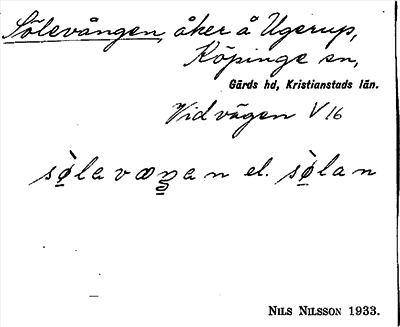 Sölevången, åker å Ugerup,
Köpinge sn,
Gärds hd, Kristianstads län.
Vid vägen V 16
sø̀lavæŋan el. sø̀lan
NILS NILSSON 1933.